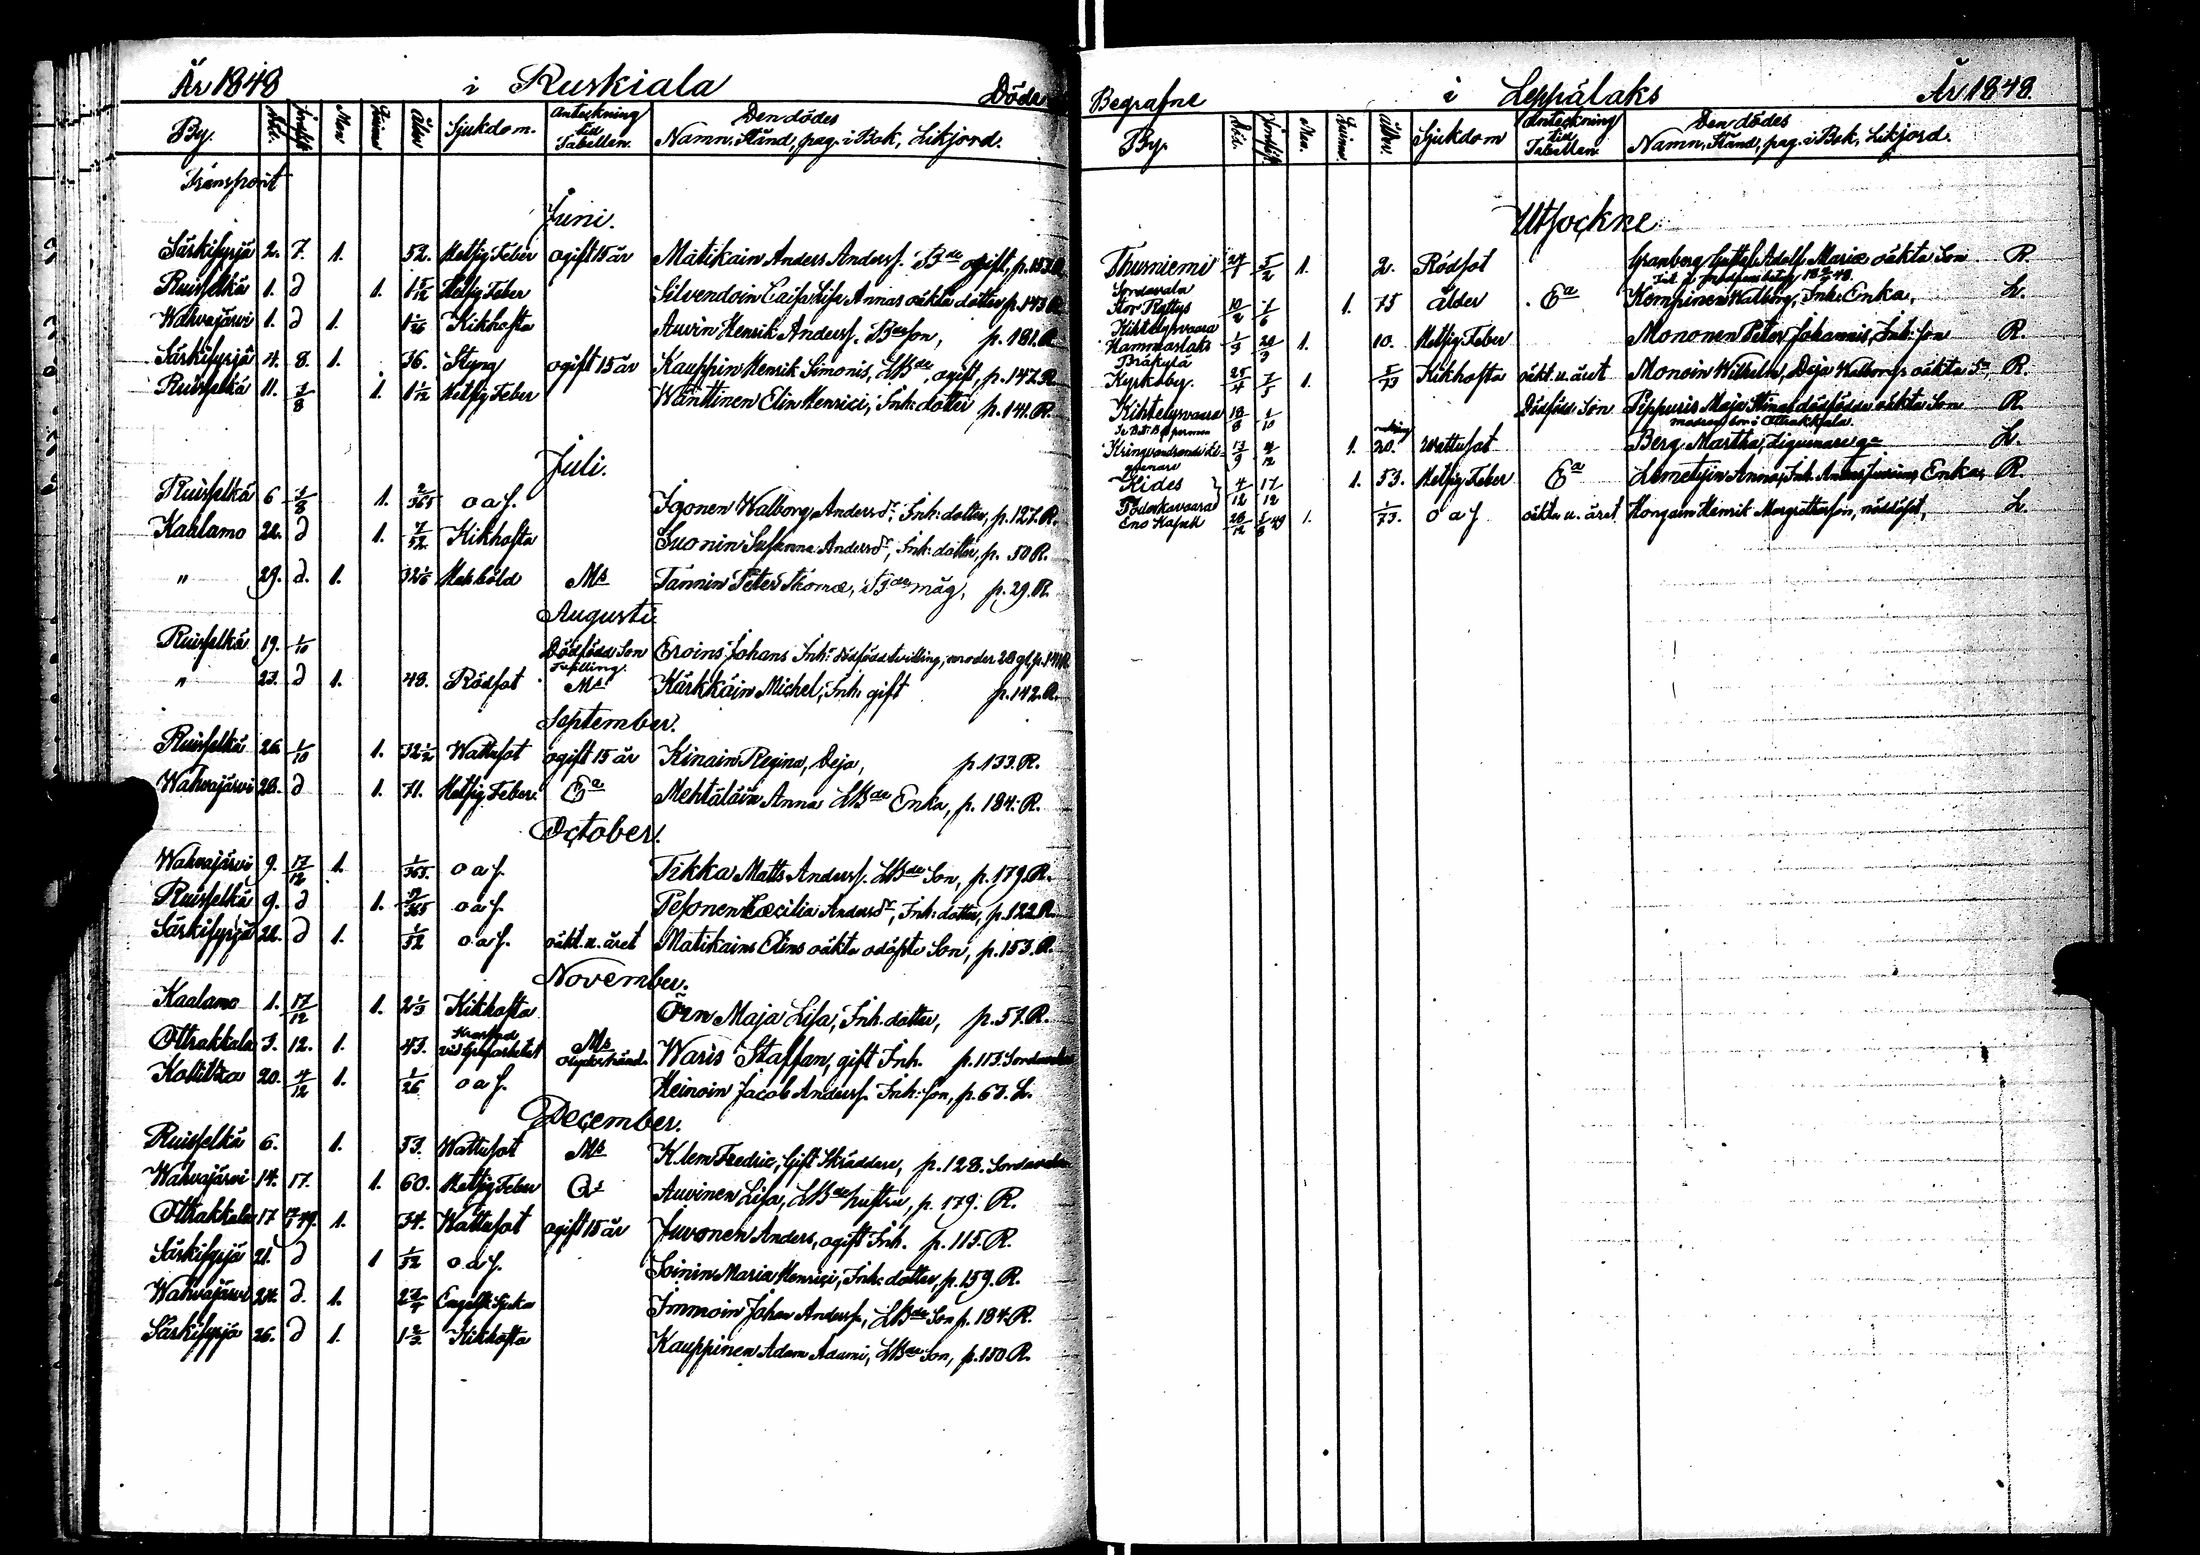 År 1848 i Ruskiala Döda
By. Mk. Qvink. Ålder Sjukdom. Anteckning till Tabellen. Den dödes Namn, Stånd, pag. i Bok, Likjord.
Transport
Juni.
Särkisyrjä 2. 7. 1. 52. Hetsig Feber ogift 15 år Mätikain Anders Andersf. Bde ogift, p. 153 R.
Ruisselkä 1. d 1. Hetsig Feber Silvendoin Caisa Lisa Annas oäkta dotter p. 143 R.
Wahvajärvi 1. d 1. 1/26 Kikhosta Auvin Henrik Andersf. Bde son, p. 181. R.
Särkisyrjä 4. 8. 1. 36. Styng ogift 15 år Kauppin Henrik Simonis, LBde, ogift, p. 147. R.
Ruisselkä 11. 1/8 1. Hetsig Feber Wänttinen Elin Henrici, Inh: dotter p. 141. R.
Juli.
Ruisselkä 6 1/8 1. 2/365 o a f. Igonen Walborg Andersdr, Inh: dotter, p. 127. R.
Kaalamo 22. d 1. 7/52 Kikhosta Suonin Susanna Andersdr, Inh: dotter, p. 50 R.
" 29. d. 1. Tannin Peter Thomæ, Bde måg, p. 29. R.
Augusti
Ruisselkä 19. 1/10 Dödfödd Son Tvilling. Eroins Johans Inhs dödfödd tvilling, moder 28 gl, p. 141 R.
" 23. d 1. 48. Rödsot Ms Kärkkäin Michel, Inh: gift p. 142. R.
September.
Ruisselkä 26. 1/10 1. 32 1/2 Wattusot ogift 15 år Kinain Regina, Deja, p. 133. R.
Wahvajärvi 28. d 1. 71. Hetsig Feber. Ea Mehtäläin Anna LBde Enka, p. 184. R.
October.
Wahvajärvi 9. 17/12 1. 1/365. o a f. Tikka Matts Andersf. LBde Son, p. 179. R.
Ruisselkä 9. d 1. o a f. Pesonen Cæcilia Andersdr, Inh: dotter, p. 122 R.
Särkisyrjä 22. d 1. 1/52 o a f. oäkt. u. året Matikains Elins oäkta odöpte Son, p. 153. R.
November.
Kaalamo 1. 17/12 1. 2 1/3 Kikhosta Örn Maja Lisa, Inh. dotter, p. 57. R.
Ottrakkala 3. 12. 1. 43. Krossad vid Grufarbetet Ms olyckshänd. Waris Staffan, gift Inh. p. 113. Sordavala
20. 4/12 1. 1/26 o a f. Heinoin Jacob Andersf. Inh: son, p. 63. L.
December.
Ruisselkä 6. 1. 53. Wattusot Ms Klem Fredric, Gift Skräddare, p. 128. Sordavala
Wahvajärvi 14. 17. 1. 60. Hetsig Feber Qs Auvinen Lisa, LBde hustru, p. 179. R.
Ottrakkala 17 1. 34. Wattusot ogift 15 år Juvonen Anders, ogift Inh. p. 115. R.
Särkisyrjä 21. d 1 1/52 o a f. Soinin Maria Henrici, Inh: dotter, p. 159. R.
Wahvajärvi 24. d. 1. Engelsk Sjuka Immoin Johan Andersf, LBde Son p. 184. R.
Särkisyrjä 26. d 1. 1 2/3. Kikhosta Kauppinen Adam Adami, LBde son, p. 150. R.
Begrafne i Leppälaks År 1848.
By. Mn. Qvinnor Ålder. Sjukdom Anteckning till Tabellen Den dödes Namn, Stånd, pag. i Bok, Likjord.
Utsockne
Thurniemi 24/1 5/2 1. 2. Rödsot Granberg Gustaf Adolf Mariæ oäkta Son R.
Sordavala
Stor Ryttys 10/2 1/6 1. 75 Ålder Ea Kemppinen Walborg, Inh: Enka, L.
Kihtelysvaara
Hammaslaks 1/3 20/3 1. 10. Hetsig Feber Mononen Peter Johannis, Inh: son R.
Bräkylä
Kyrkoby. 25/4 7/5 1. 5/73 Kikhosta oäkt. u. året Monoin Wilhelm, Deja Walborgs oäkta Sn, R.
Kihtelysvaara 18/8 1/10 Dödfödd Son Pippuris Maja Stinas dödfödda oäkta Son R.
modren bor i Ottrakkala.
Kringvandrande Zigenare 13/9 4/12 1. 20. Wattusot Berg Martha, Zigenare L.
Kides 4/12 17/12 1. 53. Hetsig Feber Ea Lemetyin Anna, Inh. Enka, R.
Eno Kapell 28/12 1. 1/73. o a f oäkta u. året Hongain Henrik Margrettasson, nöddöpt, L.